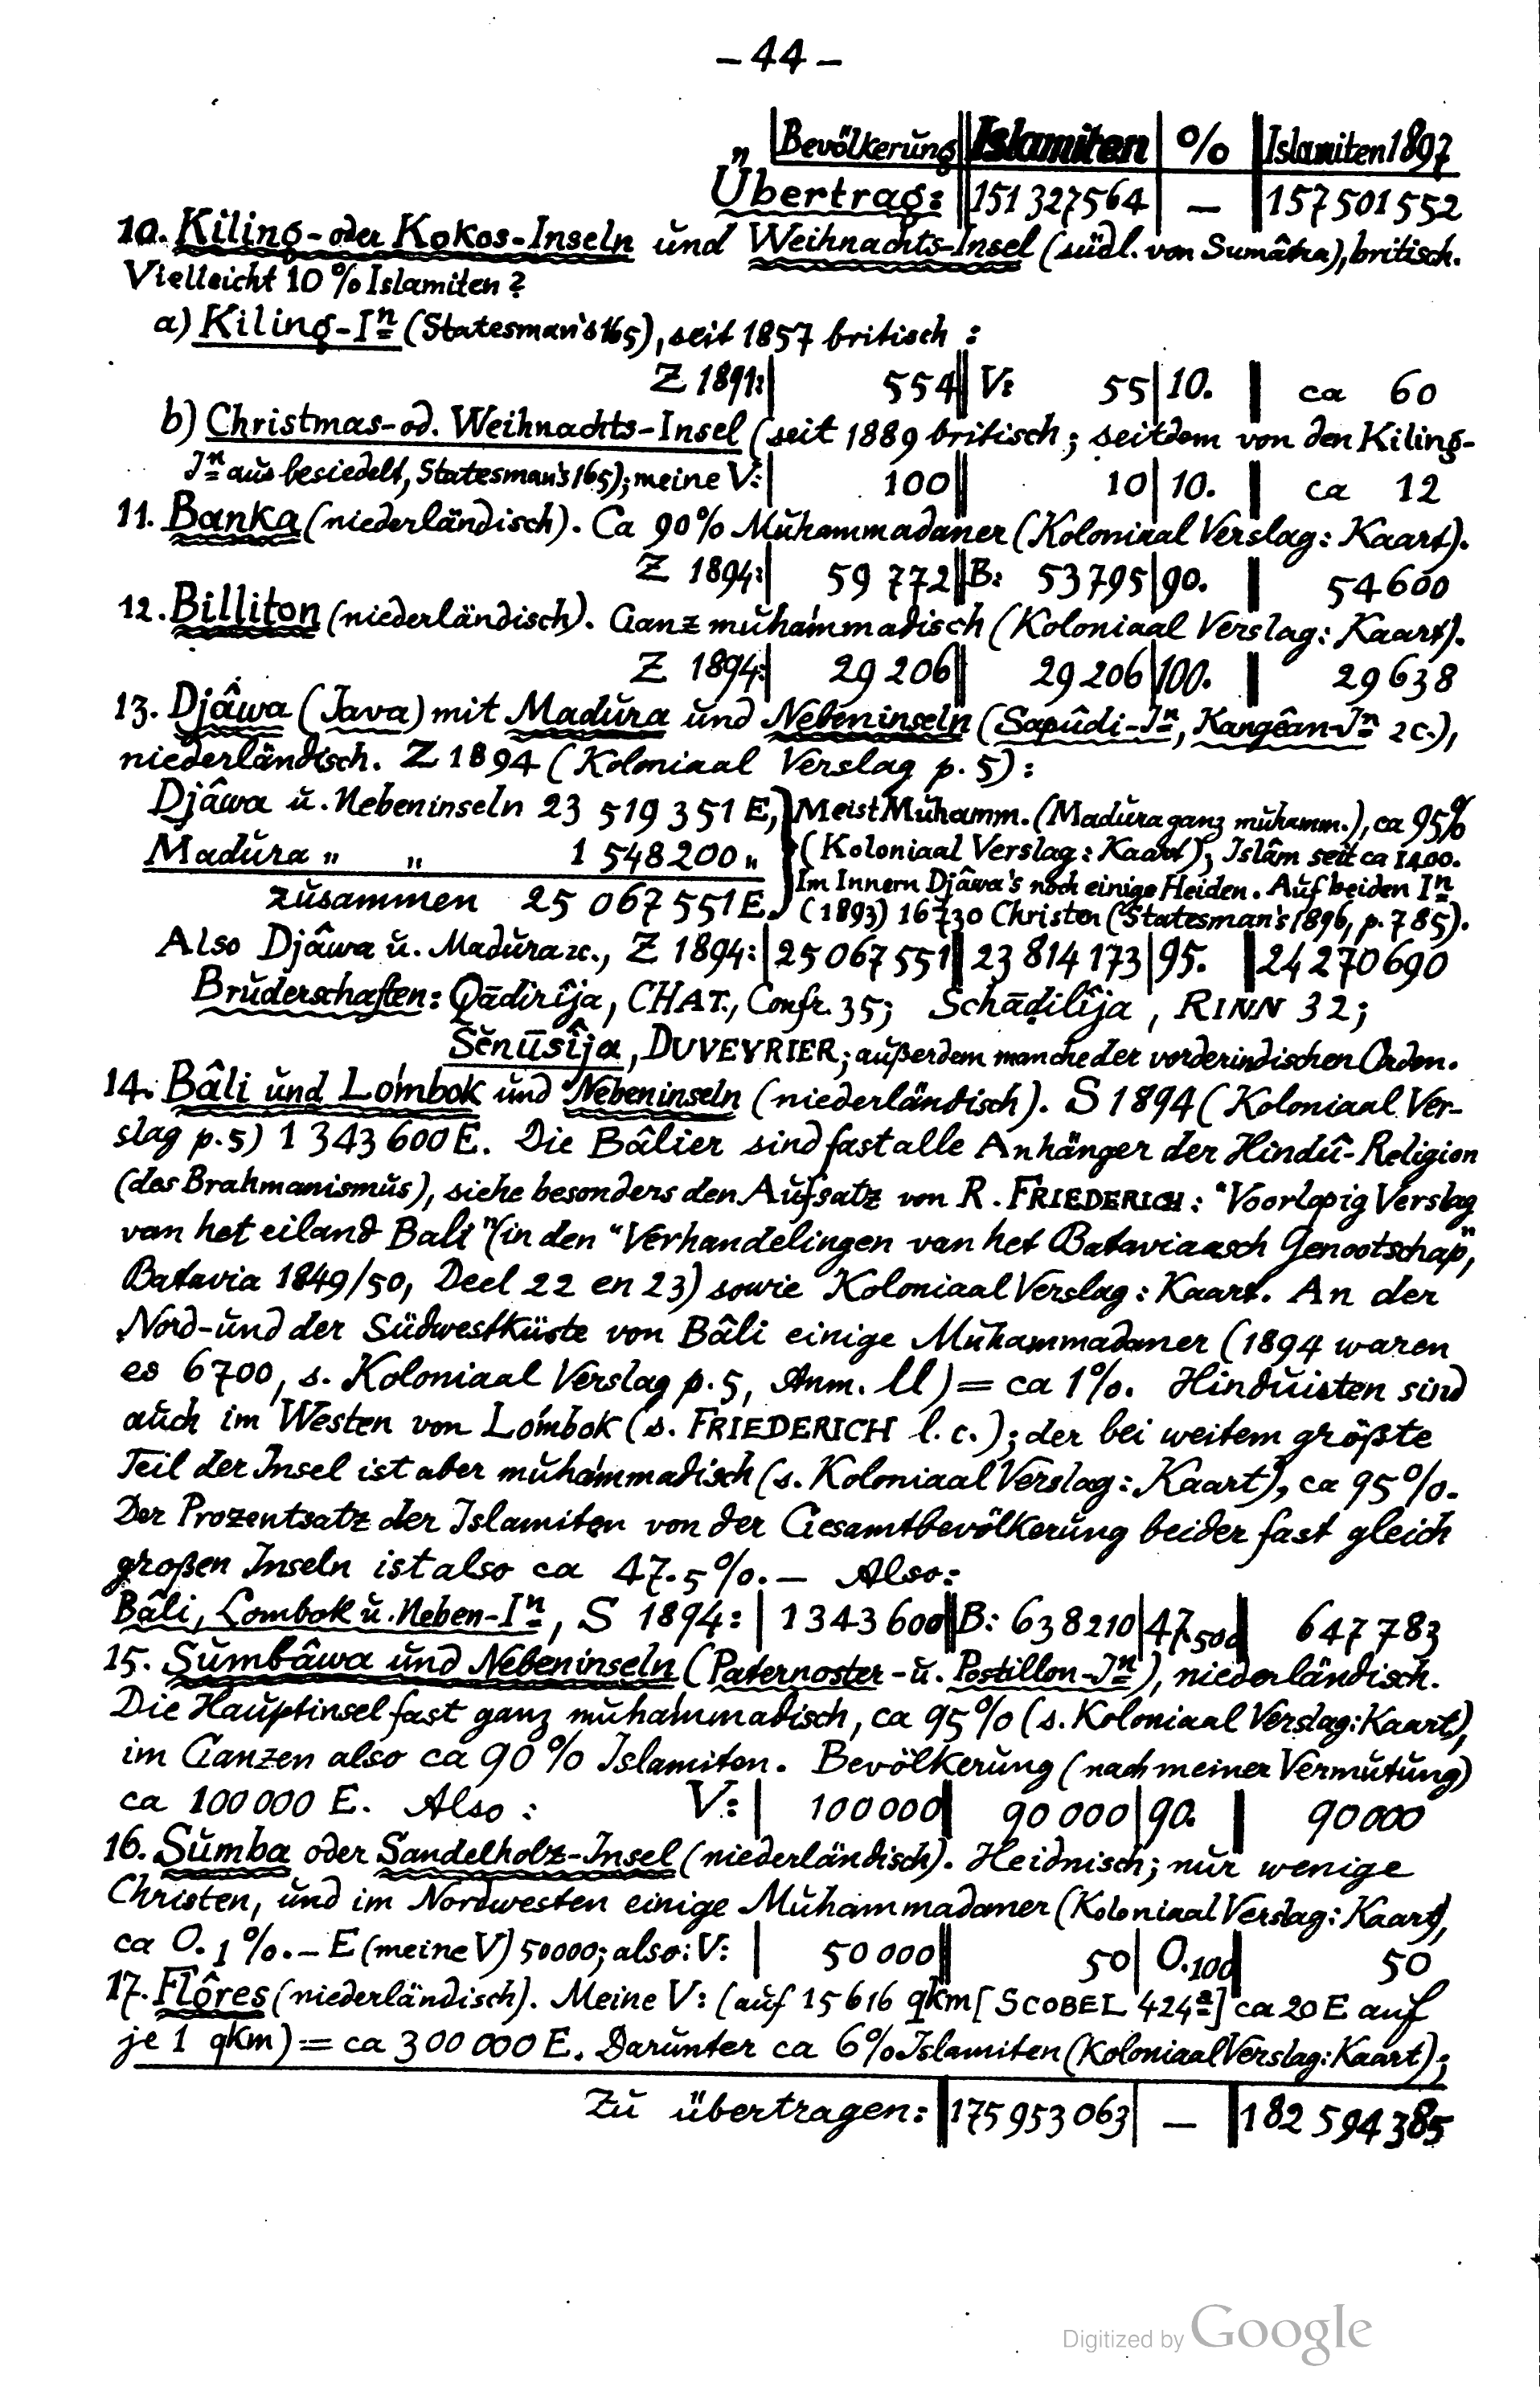 – 44 –
Bevölkerung Islamiten % Islamiten 1897
Übertrag: 151 327 564 – 157 501 552
10. Kiling- oder Kokos-Inseln und Weihnachts-Insel (südl. von Sumâtra), britisch.
Vielleicht 10 % Islamiten?
a) Kiling-In (Statesman's 165), seit 1857 britisch:
Z 1891: 554 V: 55 10. ca 60
b) Christmas- od. Weihnachts-Insel (seit 1889 britisch; seitdem von den Kiling-
In aus besiedelt, Statesman's 165); meine V: 100 10 10. ca 12
11. Banka (niederländisch). Ca 90 % Muhammadaner (Koloniaal Verslag: Kaart).
Z 1894: 59 772 B: 53 795 90. 54 600
12. Billiton (niederländisch). Ganz muhámmadisch (Koloniaal Verslag: Kaart).
Z 1894: 29 206 29 206 100. 29 638
13. Djâwa (Java) mit Madŭra und Nebeninseln (Sapûdi-In, Kangêan-In 2c.),
niederländisch. Z 1894 (Koloniaal Verslag p. 5):
Djâwa ŭ. Nebeninseln 23 519 351 E, Meist Muhamm. (Madŭra ganz muhamm.), ca 95 %
Madŭra „ „ 1 548 200 „ (Koloniaal Verslag: Kaart); Islâm seit ca 1400.
zŭsammen 25 067 551 E. Im Innern Djâwa's noch einige Heiden. Auf beiden In
(1893) 16 730 Christen (Statesman's 1896, p. 785).
Also Djâwa ŭ. Madŭra 2c., Z 1894: 25 067 551 23 814 173 95. 24 270 690
Brŭderschaften: Qādirîja, CHAT., Confr. 35; Schāḏilîja, RINN 32;
Sĕnūsîja, DUVEYRIER; außerdem manche der vorderindischen Orden.
14. Bâli und Lómbok und Nebeninseln (niederländisch). S 1894 (Koloniaal Ver-
slag p. 5) 1 343 600 E. Die Bâlier sind fast alle Anhänger der Hindû-Religion
(des Brahmanismŭs), siehe besonders den Aŭfsatz von R. FRIEDERICH: "Voorlopig Verslag
van het eiland Bali" (in den "Verhandelingen van het Bataviaasch Genootschap",
Batavia 1849/50, Deel 22 en 23) sowie Koloniaal Verslag: Kaart. An der
Nord- ŭnd der Südwestküste von Bâli einige Muhammadaner (1894 waren
es 6700, s. Koloniaal Verslag p. 5, Anm. ll) = ca 1 %. Hindŭisten sind
aŭch im Westen von Lómbok (s. FRIEDERICH l. c.); der bei weitem größte
Teil der Insel ist aber muhámmadisch (s. Koloniaal Verslag: Kaart), ca 95 %.
Der Prozentsatz der Islamiten von der Gesamtbevölkerŭng beider fast gleich
großen Inseln ist also ca 47.5 %. – Also:
Bâli, Lombok ŭ. Neben-In, S 1894: 1 343 600 B: 638 210 47.50d 647 783
15. Sŭmbâwa ŭnd Nebeninseln (Paternoster- ŭ. Postillon-In), niederländisch.
Die Haŭptinsel fast ganz muhámmadisch, ca 95 % (s. Koloniaal Verslag: Kaart),
im Ganzen also ca 90 % Islamiten. Bevölkerŭng (nach meiner Vermŭtŭng)
ca 100 000 E. Also: V: 100 000 90 000 90. 90 000
16. Sŭmba oder Sandelholz-Insel (niederländisch). Heidnisch; nŭr wenige
Christen, ŭnd im Nordwesten einige Muhammadaner (Koloniaal Verslag: Kaart),
ca 0.1 %. – E (meine V) 50 000; also: V: 50 000 50 0.10d 50
17. Flôres (niederländisch). Meine V: (aŭf 15 616 qkm [SCOBEL 424a] ca 20 E aŭf
je 1 qkm) = ca 300 000 E. Darŭnter ca 6 % Islamiten (Koloniaal Verslag: Kaart);
Zŭ übertragen: 175 953 063 – 182 594 385
Digitized by Google